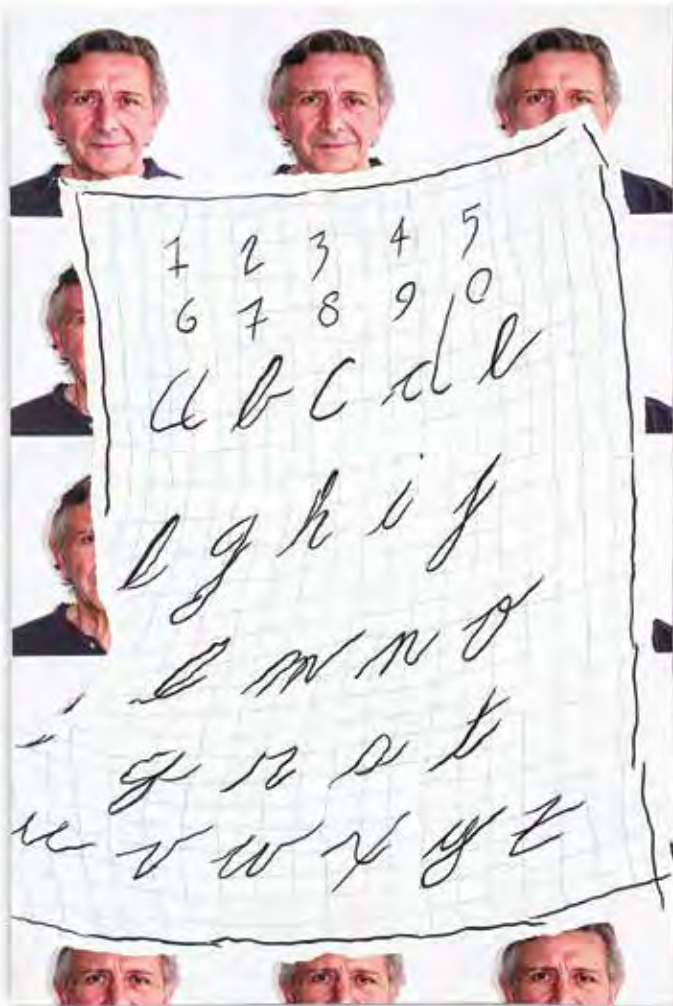 1 2 3 4 5
6 7 8 9 0
a b c d e
f g h i j
l m n o
q r s t
u v w x y z